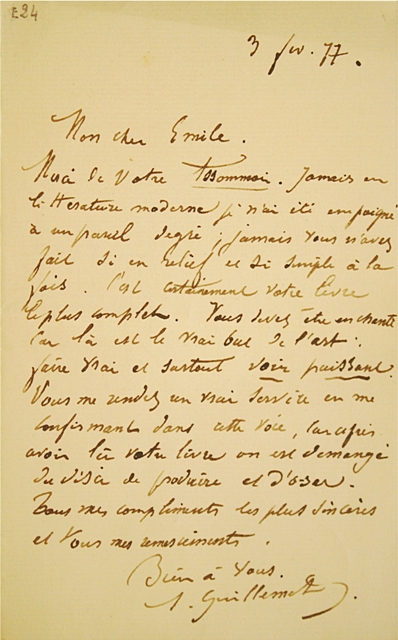 E24
3 fev. 77.
Mon cher Emile.
Merci de votre Assommoir. Jamais en
litterature moderne je n'ai été empoigné
à un pareil degré ; jamais vous n'avez
fait si en relief et si simple à la
fois. C'est certainement votre livre
le plus complet. Vous devez être enchanté
Car là est le vrai but de l'art :
faire vrai et surtout voir puissant.
Vous me rendez un vrai service en me
confirmant dans cette voie, car après
avoir lu votre livre on est demangé
du désir de produire et d'oser.
Tous mes compliments les plus sincères
et tous mes remerciements.
Bien à vous.
A. Guillemet